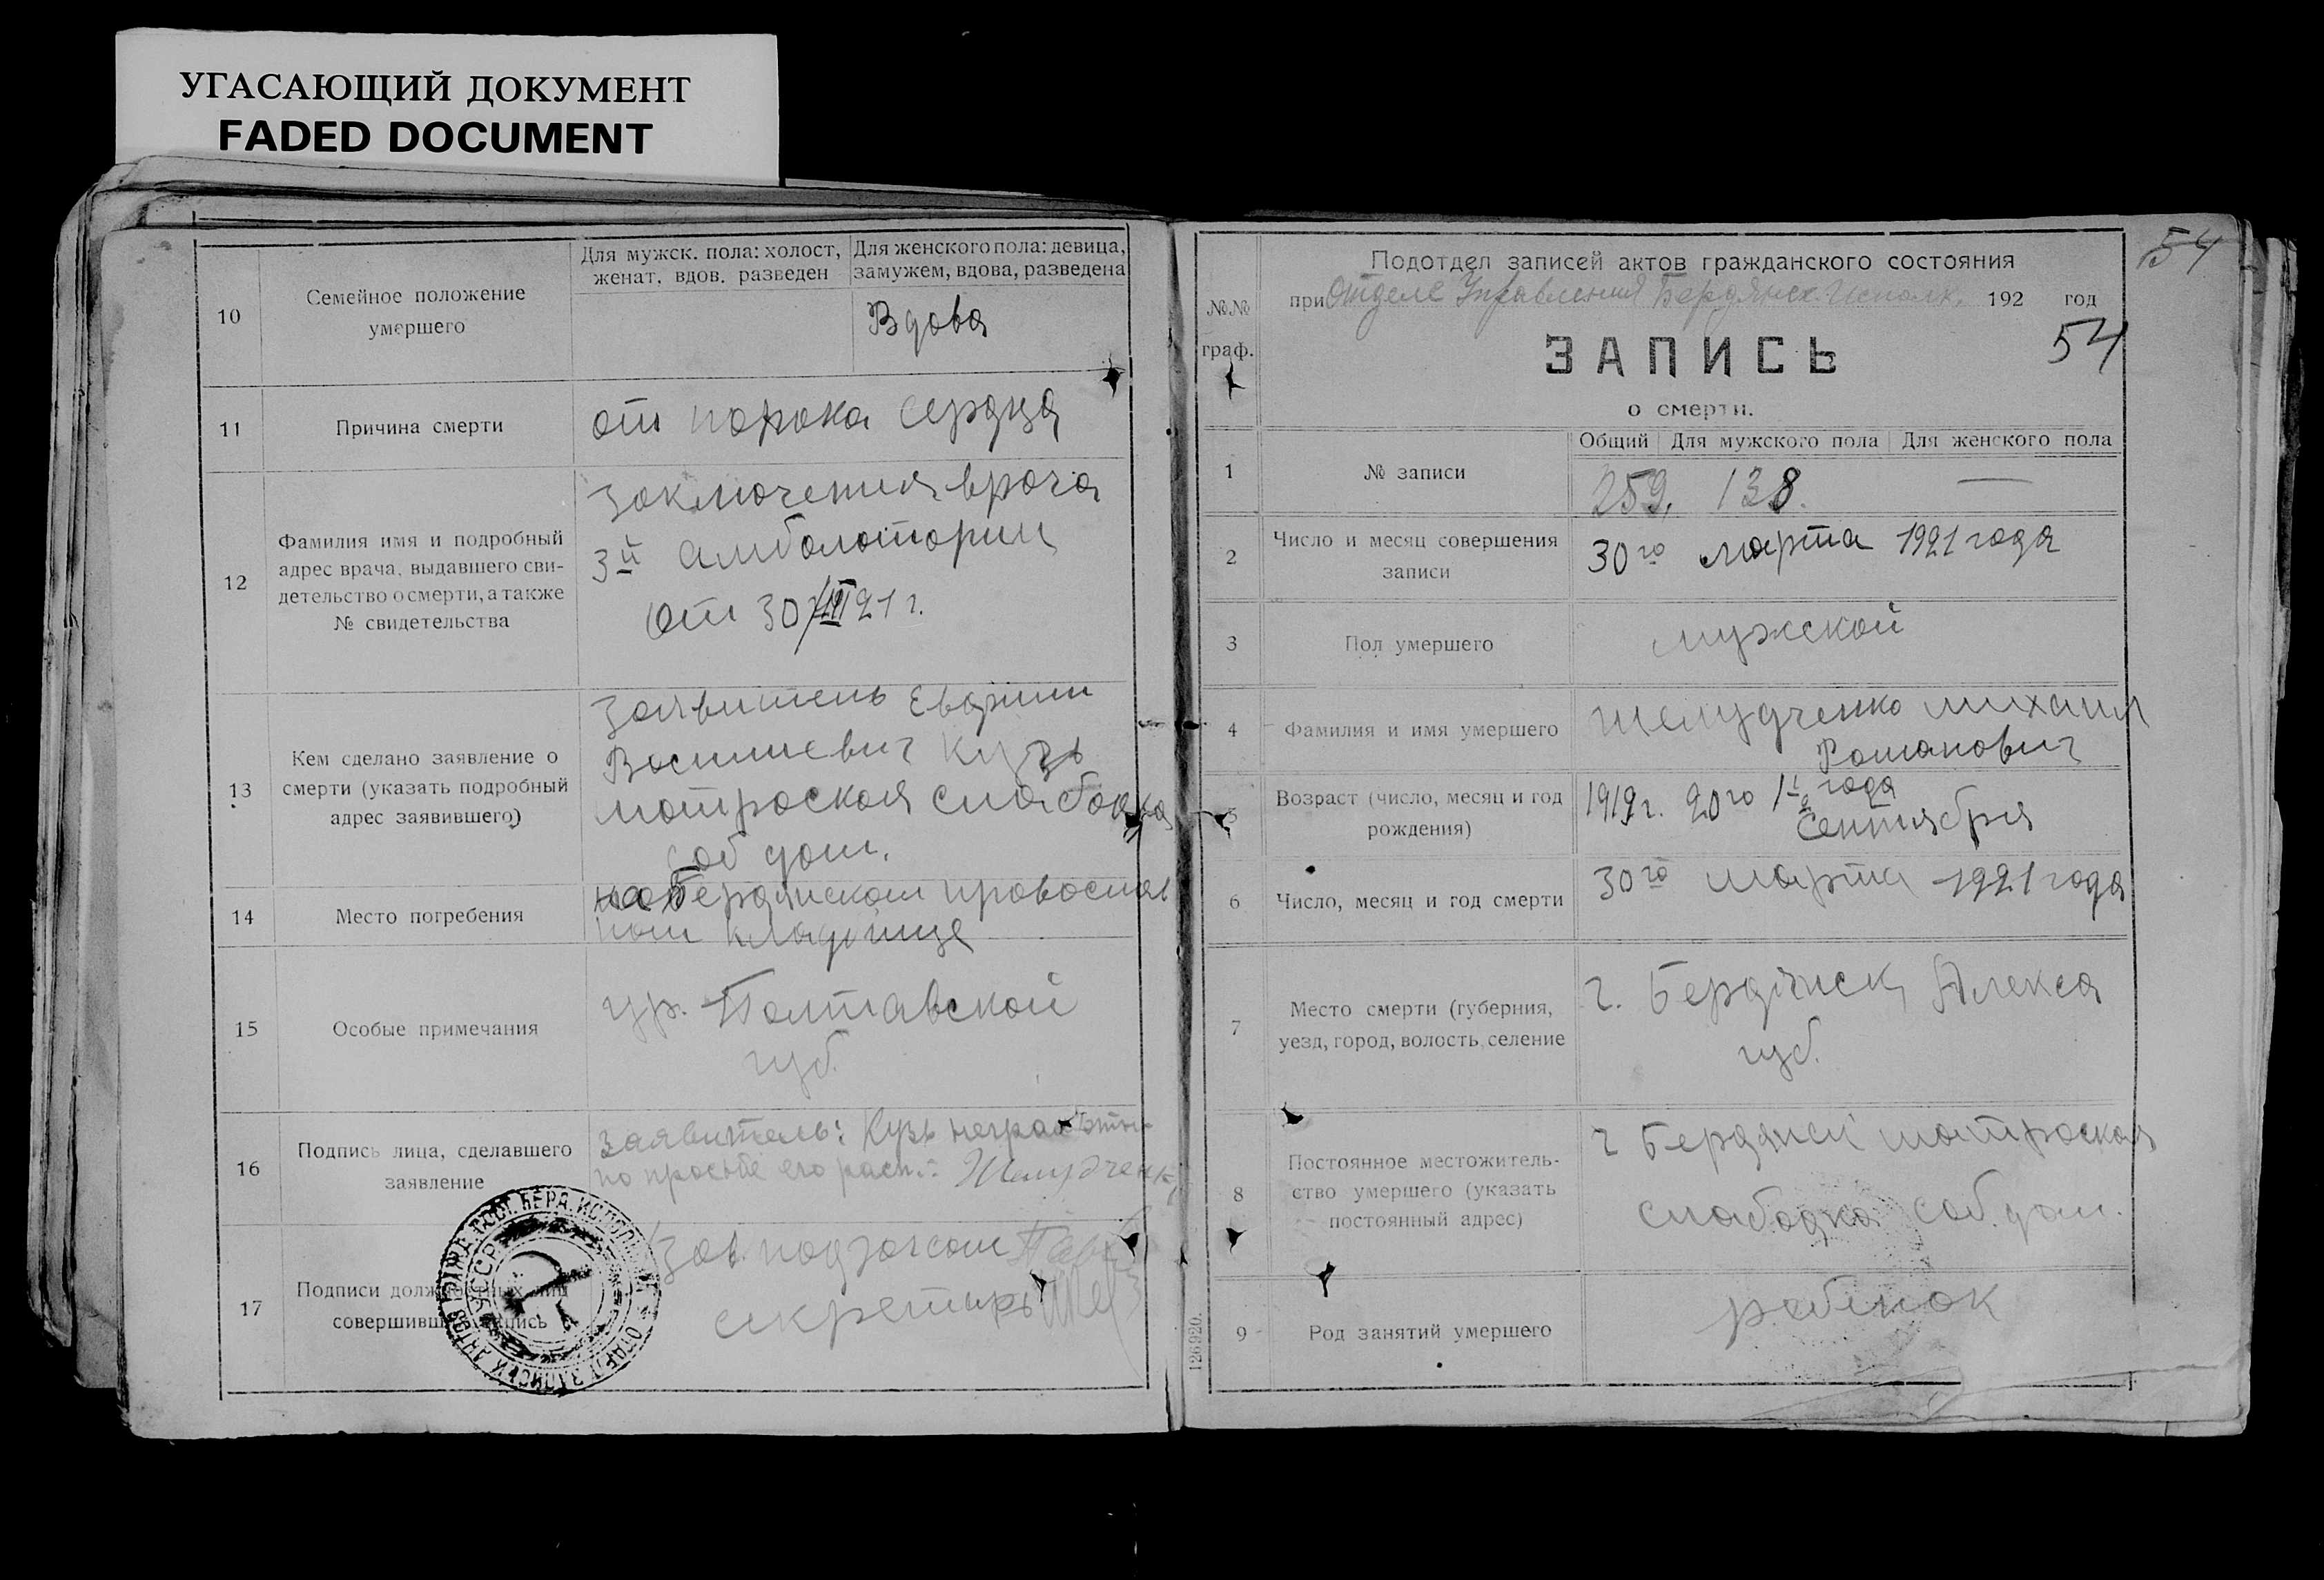 УГАСАЮЩИЙ ДОКУМЕНТ
FADED DOCUMENT
10
Семейное положение
умершего
Для мужск. пола: холост,
женат, вдов. разведен
Для женского пола: девица,
замужем, вдова, разведена
Вдова
11
Причина смерти
от порока сердца
12
Фамилия имя и подробный
адрес врача, выдавшего сви-
детельство о смерти, а также
№ свидетельства
Заключения врача
3й амболотории
от 30/III 21 г.
13
Кем сделано заявление о
смерти (указать подробный
адрес заявившего)
Заявитель
Василиевич Кузь
матроская слабодка
соб дом.
14
Место погребения
на бердянском православ
ном кладбище
15
Особые примечания
гр. Полтавской
губ.
16
Подпись лица, сделавшего
заявление
Заявитель: Кузь неграмотн.
по просьбе его расп.: Желудченк
17
Подписи должностных лиц
совершивших запись
Зав. подзагсом
секретарь
54
Подотдел записей актов гражданского состояния
при Отделе Управления Бердянск. Исполк. 192 год
№№
граф.
54
ЗАПИСЬ
о смерти.
1
№ записи
Общий
Для мужского пола
Для женского пола
259. 138. —
2
Число и месяц совершения
записи
30го марта 1921 года
3
Пол умершего
мужской
4
Фамилия и имя умершего
Желудченко михаил
Романович
5
Возраст (число, месяц и год
рождения)
1919г. 20го 1½ года
Сентября
6
Число, месяц и год смерти
30го марта 1921 года
7
Место смерти (губерния,
уезд, город, волость, селение
г. Бердянск, Алекса
губ.
8
Постоянное местожитель-
ство умершего (указать
постоянный адрес)
г Бердянск матроская
слабодка соб. дом.
9
Род занятий умершего
ребінок
126920.